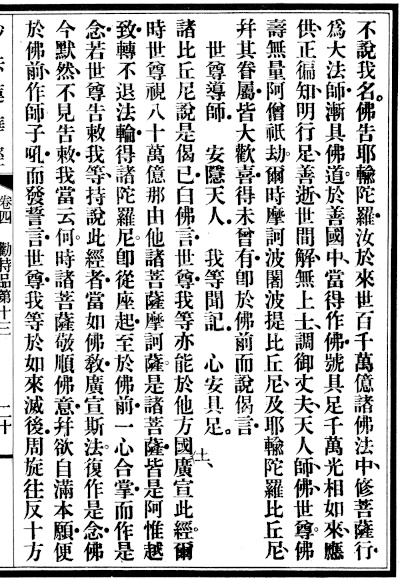 不說我名。佛告耶輸陀羅。汝於來世百千萬億諸佛法中、修菩薩行、
爲大法師。漸具佛道。於善國中、當得作佛。號具足千萬光相如來、應
供、正徧知、明行足、善逝、世間解、無上士、調御丈夫、天人師、佛世尊。佛
壽無量阿僧祇劫。爾時摩訶波闍波提比丘尼、及耶輸陀羅比丘尼、
幷其眷屬。皆大歡喜。得未曾有。卽於佛前而說偈言。
世尊導師　安隱天人　我等聞記　心安具足。
諸比丘尼說是偈已。白佛言。世尊。我等亦能於他方國廣宣此經。爾
時世尊視八十萬億那由他諸菩薩摩訶薩。是諸菩薩、皆是阿惟越
致。轉不退法輪。得諸陀羅尼。卽從座起。至於佛前。一心合掌。而作是
念。若世尊告敕我等、持說此經者。當如佛敎、廣宣斯法。復作是念。佛
今默然。不見告敕。我當云何。時諸菩薩敬順佛意。幷欲自滿本願。便
於佛前、作師子吼、而發誓言。世尊。我等於如來滅後。周旋往反十方
卷四　勸持品第十三　二十